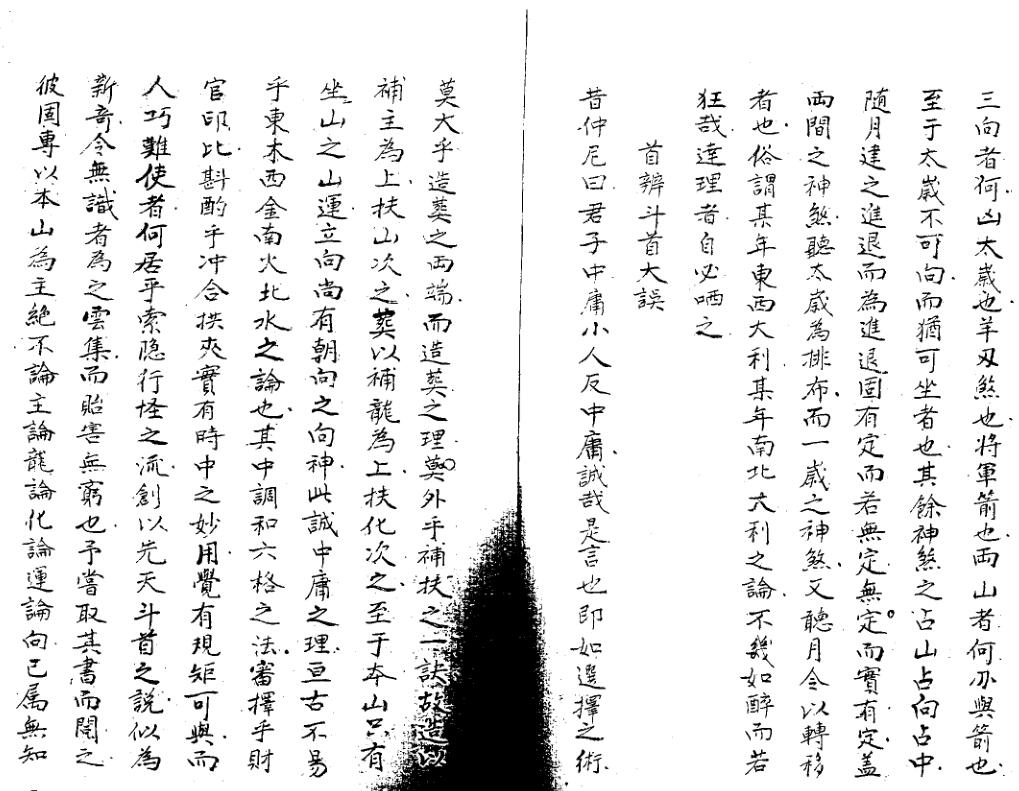 三向者何凶太歲也羊刃煞也将軍箭也両山者何刃與箭也
至于太歲不可向而猶可坐者也其餘神煞之占山占向占中
随月建之進退而為進退固有定而若無定無定而實有定盖
両間之神煞聽太歲為排布而一歲之神煞又聽月令以轉移
者也俗謂某年東西大利某年南北大利之論不幾如醉而若
狂哉達理者自必哂之
首辨斗首大誤
昔仲尼曰君子中庸小人反中庸誠哉是言也即如選擇之術
莫大乎造葬之両端而造葬之理莫外乎補扶之一訣故造以
補主為上扶山次之葬以補龍為上扶化次之至于本山只有
坐山之山運立向尚有朝向之向神此誠中庸之理亘古不易
乎東木西金南火北水之論也其中調和六格之法審擇乎財
官印比斟酌乎冲合拱夾實有時中之妙用覺有規矩可與而
人巧難使者何居乎索隐行怪之流創以先天斗首之說似為
新奇令無識者為之雲集而貽害無窮也予嘗取其書而閱之
彼固專以本山為主絶不論主論龍論化論運論向已属無知